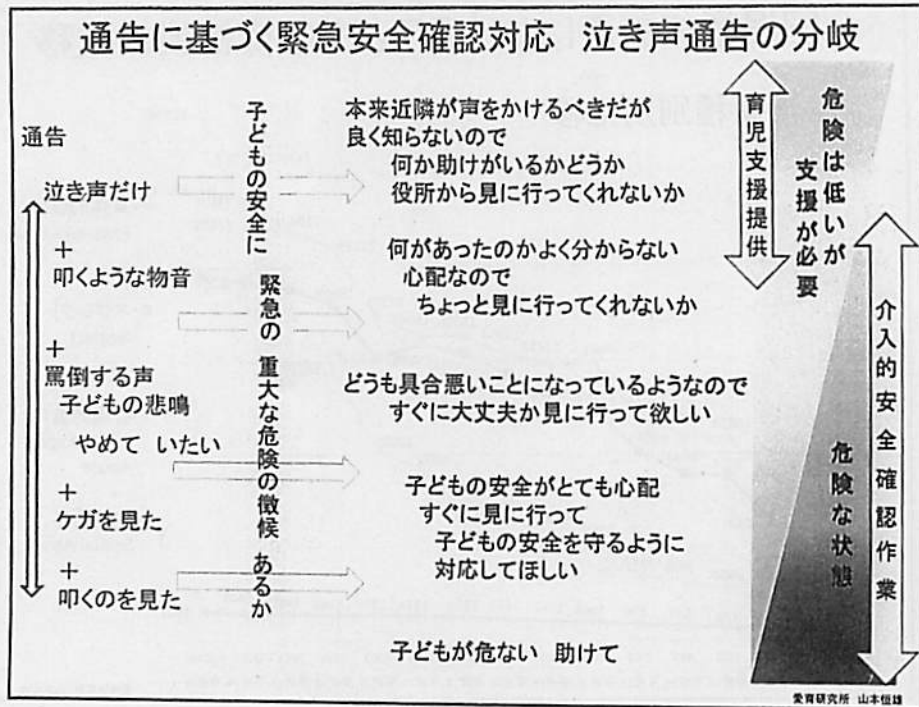 通告に基づく緊急安全確認対応 泣き声通告の分岐
通告
泣き声だけ
+
叩くような物音
+
罵倒する声
子どもの悲鳴
やめて いたい
+
ケガを見た
+
叩くのを見た
子どもの安全に 緊急の 重大な危険の徴候 あるか
本来近隣が声をかけるべきだが
良く知らないので
何か助けがいるかどうか
役所から見に行ってくれないか
何があったのかよく分からない
心配なので
ちょっと見に行ってくれないか
どうも具合悪いことになっているようなので
すぐに大丈夫か見に行って欲しい
子どもの安全がとても心配
すぐに見に行って
子どもの安全を守るように
対応してほしい
子どもが危ない 助けて
育児支援提供
危険は低いが
支援が必要
危険な状態
介入的安全確認作業
愛育研究所 山本恒雄